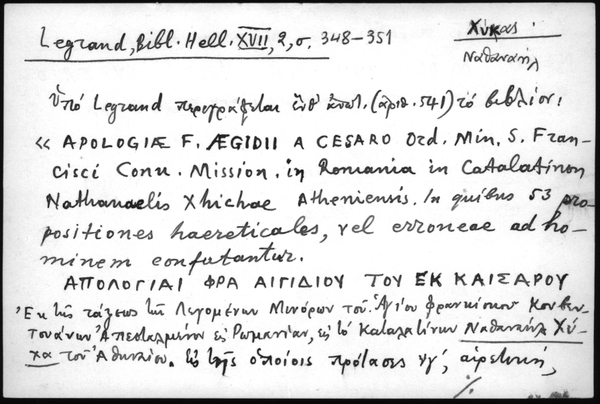 Legrand, Bibl. Hell. XVII, 2, σ. 348-351
Χύκας
Ναθαναήλ
Ὑπό Legrand περιγράφεται ἐνθ' ἀνωτ. (ἀριθ. 541) τό βιβλίον:
« APOLOGIÆ F. ÆGIDII A CESARO Ord. Min. S. Fran-
cisci Conu. Mission. in Romania in Catalatinon
Nathanaelis Xhichae Atheniensis. In quibus 53 pro-
positiones haereticales, vel erroneae ad ho-
minem confutantur.
ΑΠΟΛΟΓΙΑΙ ΦΡΑ ΑΙΓΙΔΙΟΥ ΤΟΥ ΕΚ ΚΑΙΣΑΡΟΥ
Ἐκ τῆς τάξεως τῆς Λεγομένων Μινόρων τοῦ Ἁγίου Φραγκίσκου Κονβεν-
τουάνων Ἀπεσταλμένου εἰς Ρωμανίαν, εἰς τό Καταλατίνων Ναθαναήλ Χύ-
χα τοῦ Ἀθηναίου. Εἰς τῆς ὁποίοις πρότασες νγ', αἱρετικαί,
./.